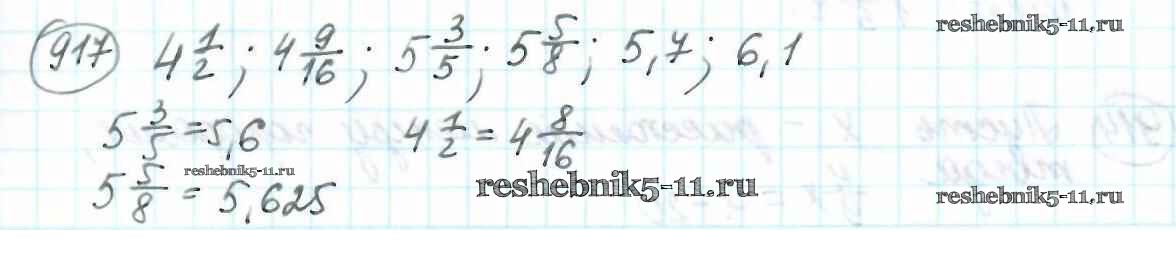 reshebnik5-11.ru
917 4 1/2; 4 9/16; 5 3/5; 5 5/8; 5,7; 6,1
5 3/5 = 5,6 4 1/2 = 4 8/16
reshebnik5-11.ru
5 5/8 = 5,625 reshebnik5-11.ru reshebnik5-11.ru